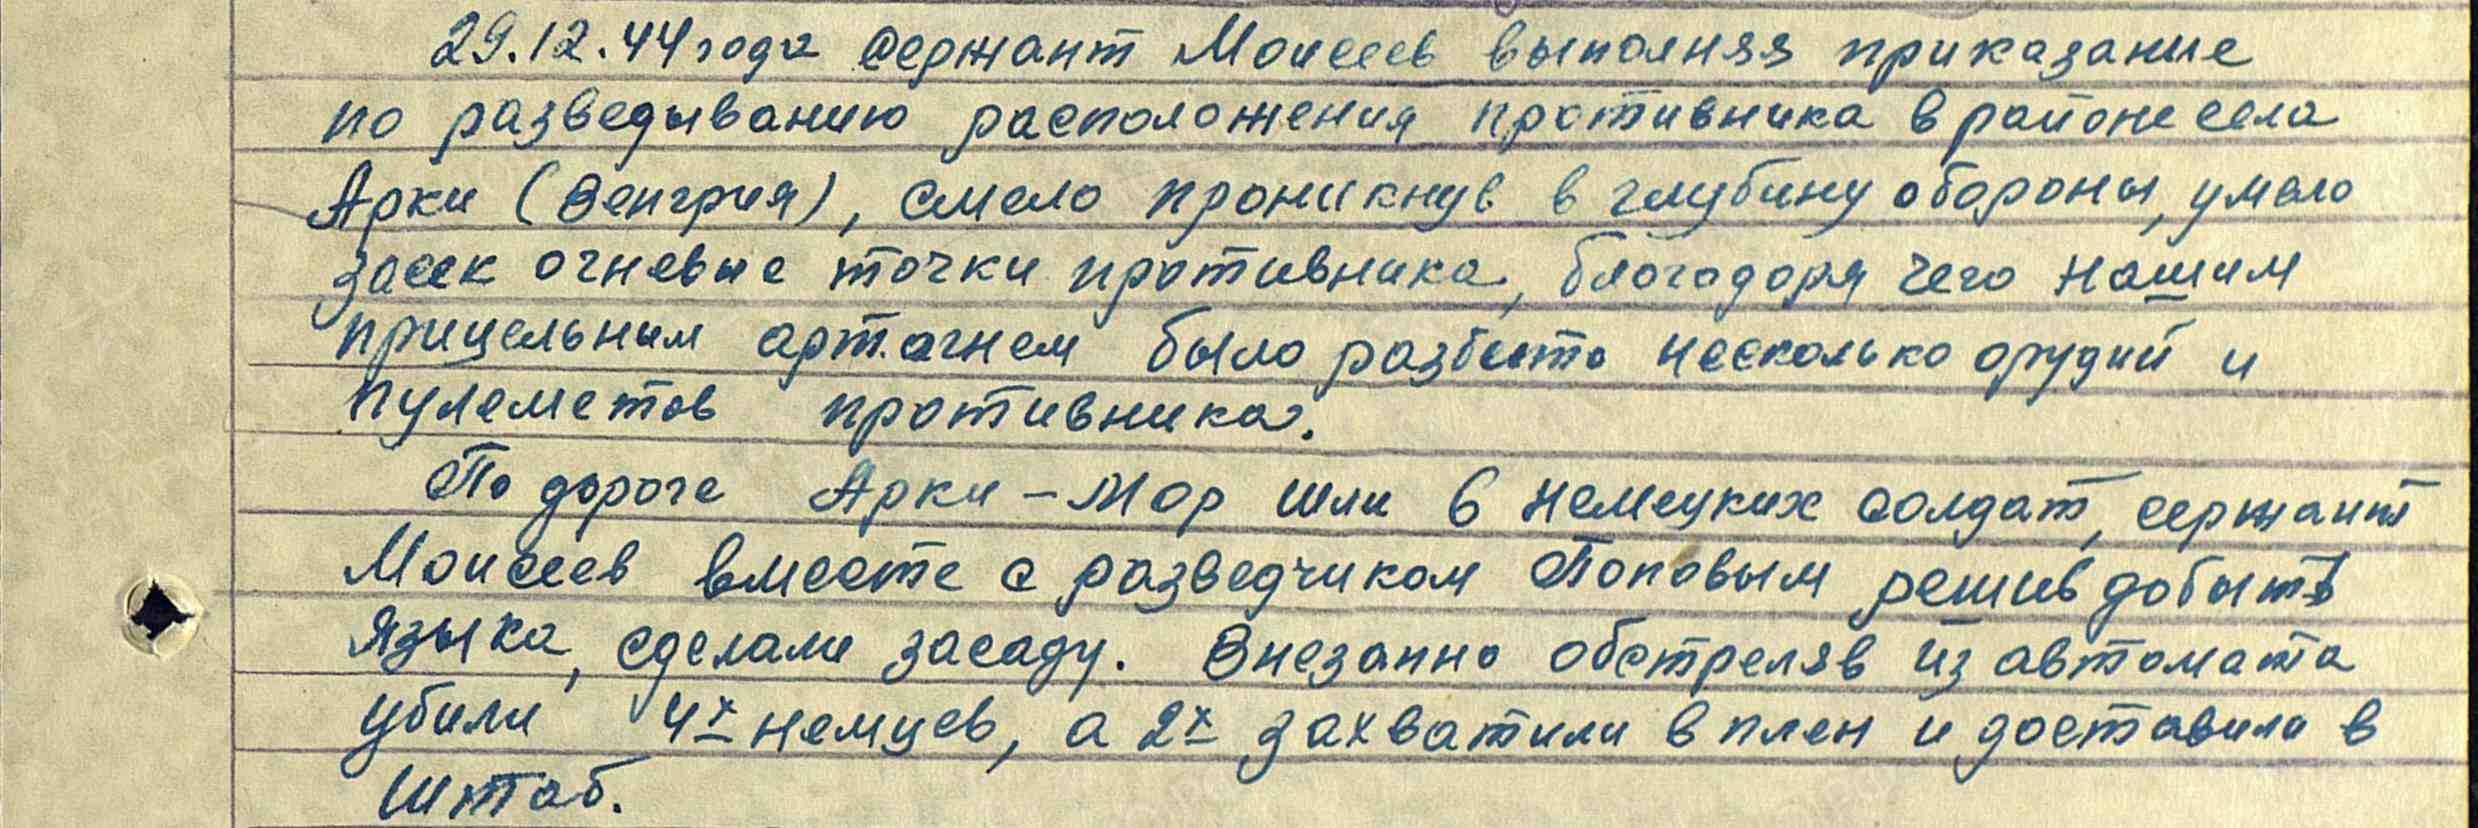 29.12.44 года сержант Моисеев выполняя приказание
по разведыванию расположения противника в районе села
Арки (Венгрия), смело проникнув в глубину обороны, умело
засек огневые точки противника, благодоря чего нашим
прицельным арт.огнем было разбито несколько орудий и
пулеметов противника.
По дороге Арки – Мор шли 6 немецких солдат, сержант
Моисеев вместе с разведчиком Поповым решив добыть
языка, сделали засаду. Внезапно обстреляв из автомата
убили 4х немцев, а 2х захватили в плен и доставили в
штаб.